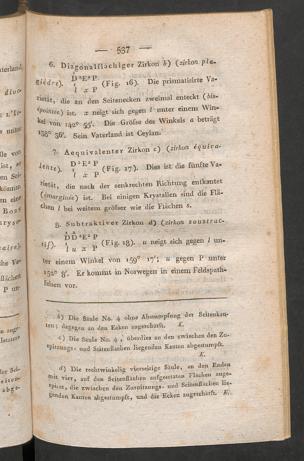 — 537 —
6. Diagonalflächiger Zirkon b) (zirkon pla-
gièdre). D²E²P (Fig. 16). Die prismatisirte Va-
l x P
rietät, die an den Seitenecken zweimal enteckt (bis-
épointée) ist. x neigt sich gegen l unter einem Win-
kel von 142° 55'. Die Größe des Winkels a beträgt
158° 56'. Sein Vaterland ist Ceylan.
7. Aequivalenter Zirkon c) (zirkon équiva-
lente). D²E²P (Fig. 17). Dies ist die fünfte Va-
l x P
rietät, die nach der senkrechten Richtung entkantet
(émarginée) ist. Bei einigen Krystallen sind die Flä-
chen l bei weitem größer wie die Flächen s.
8. Subtraktiver Zirkon d) (zirkon soustrac-
tif). D²E²P (Fig. 18). u neigt sich gegen l un-
l u x P
ter einem Winkel von 159° 17'; u gegen P unter
152° 8'. Er kommt in Norwegen in einem Feldspath-
felsen vor.
b) Die Säule No. 4 ohne Abstumpfung der Seitenkan-
ten; dagegen an den Ecken zugeschärft. K.
c) Die Säule No. 4, überdies an den zwischen den Zu-
spitzungs- und Seitenflächen liegenden Kanten abgestumpft.
K.
d) Die rechtwinklig vierseitige Säule, an den Enden
mit vier, auf den Seitenflächen aufgesetzten Flächen zuge-
spitzt, die zwischen den Zuspitzungs- und Seitenflächen lie-
genden Kanten abgestumpft, und die Ecken zugeschärft. K.